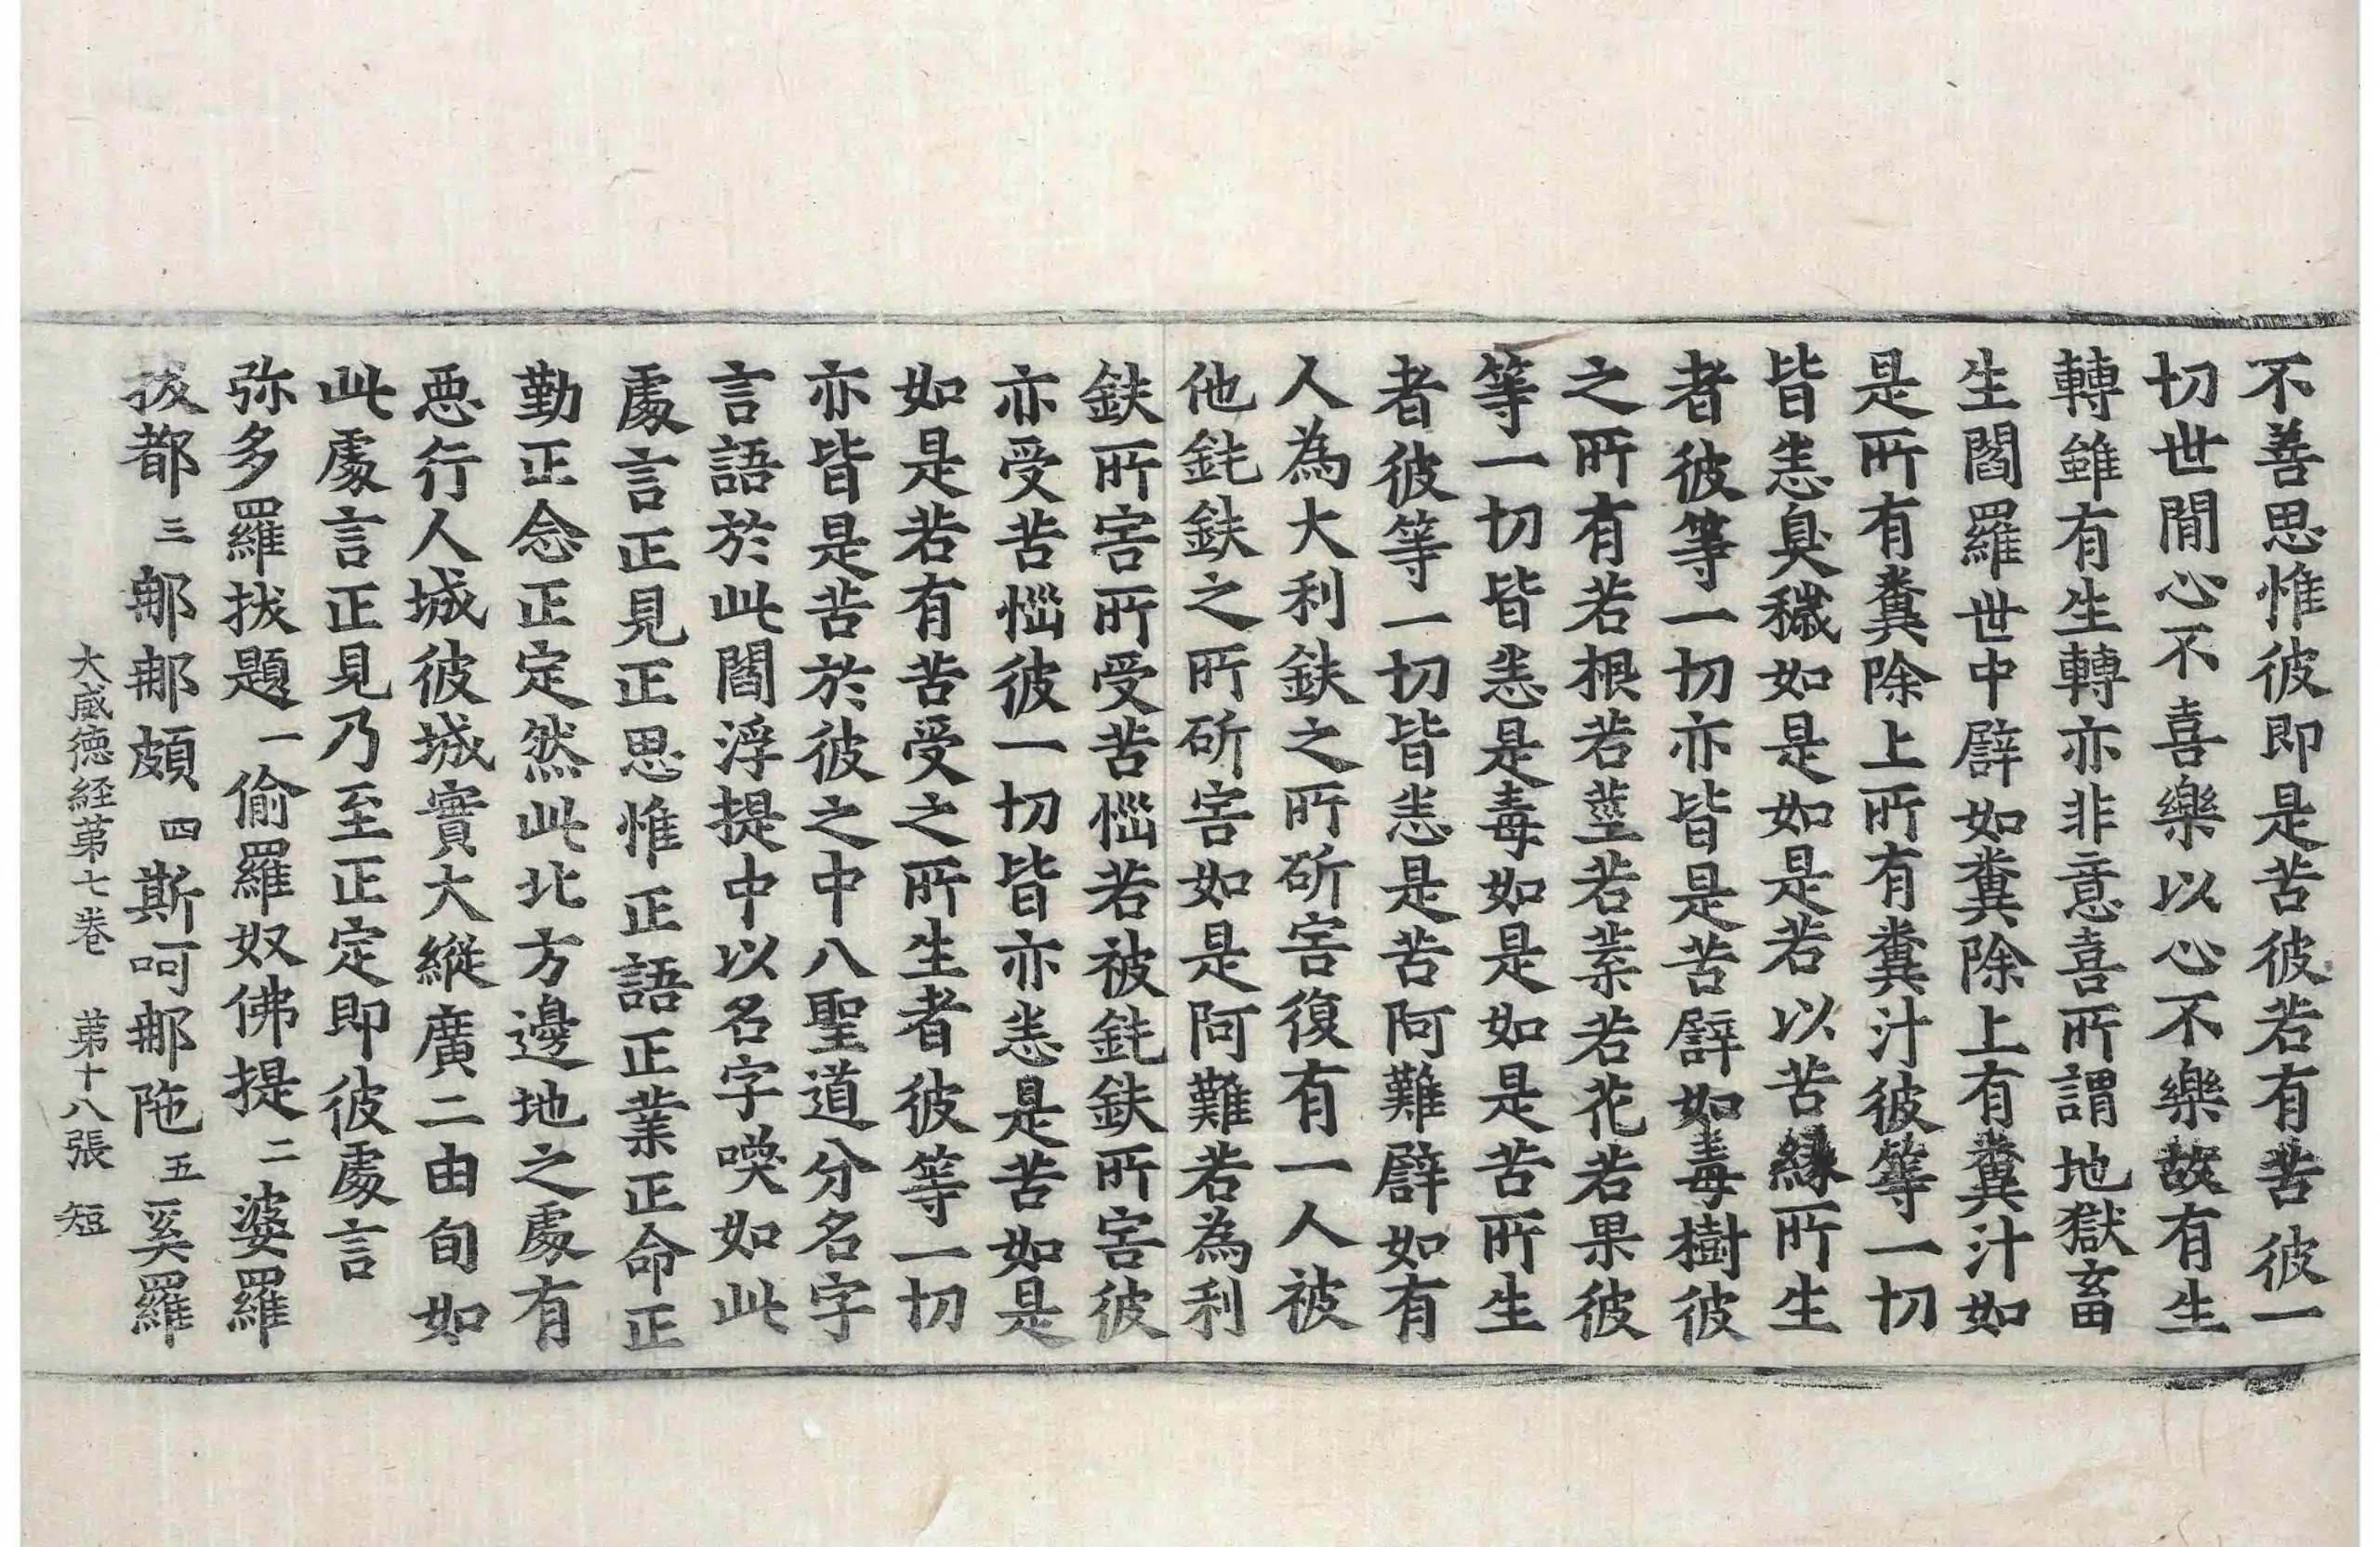 不善思惟彼即是苦彼若有苦彼一
切世間心不喜樂以心不樂故有生
轉雖有生轉亦非意喜所謂地獄畜
生閻羅世中譬如糞除上有糞汁如
是所有糞除上所有糞汁彼等一切
皆悉臭穢如是如是若以苦縁所生
者彼等一切亦皆是苦譬如毒樹彼
之所有若根若莖若葉若花若果彼
等一切皆悉是毒如是如是苦所生
者彼等一切皆悉是苦阿難譬如有
人為大利鈇之所斫害復有一人被
他鈍鈇之所斫害如是阿難若為利
鈇所害所受苦惱若被鈍鈇所害彼
亦受苦惱彼一切皆亦悉是苦如是
如是若有苦受之所生者彼等一切
亦皆是苦於彼之中八聖道分名字
言語於此閻浮提中以名字喚如此
處言正見正思惟正語正業正命正
勤正念正定然此北方邊地之處有
惡行人城彼城實大縱廣二由旬如
此處言正見乃至正定即彼處言
弥多羅拔題一偷羅奴佛提二婆羅
拔都三鄔那頗四斯呵那陁五奚羅
大威徳経第七卷 第十八張 短